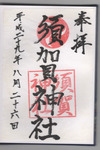 奉拝
須加神社
平成二十九年八月二十六日